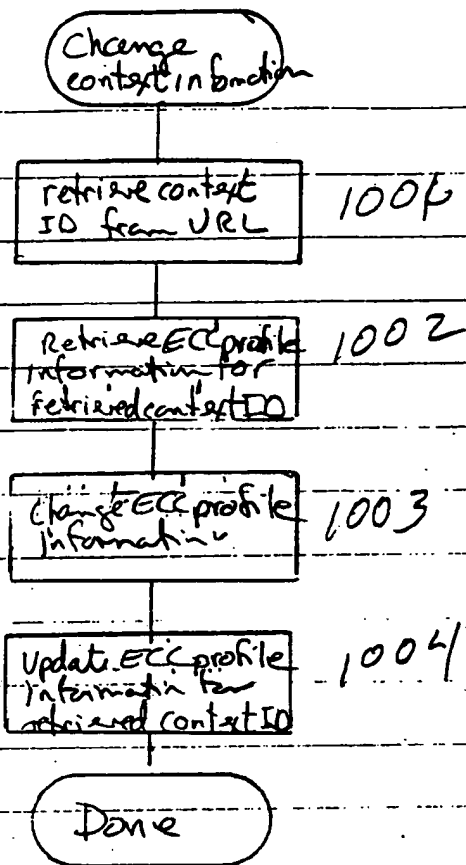 Change
context information
retrieve context
ID from URL
1001
Retrieve ECC profile
information for
retrieved context ID
1002
change ECC profile
information
1003
Update ECC profile
information for
retrieved context ID
1004
Done